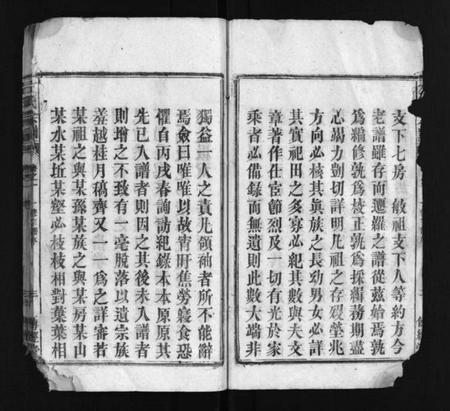 支下七房 敏祖支下人等約方今
老譜雖存而遷羅之譜從茲始焉孰
為纂修孰為校正孰為採緝務期盡
心竭力剴切詳明凡祖之存歿塋兆
方向必核其眞族之長幼男女必詳
其實祀田之多寡必紀其數與夫文
章著作仕宦節烈及一切有光於家
乘者必備錄而無遺則此數大端非
獨益一人之責凡領袖者所不能辭
焉僉曰唯唯以故宵旰焦勞寢食恐
懼自丙戌春詢訪紀錄本本原原其
先已入譜者則因之其後未入譜者
則增之不致有一毫脫落以遺宗族
羞越桂月稿齊又一一為之詳審若
某祖之與某豫某族之與某房某山
某水某坵某壑必枝枝相對葉葉相